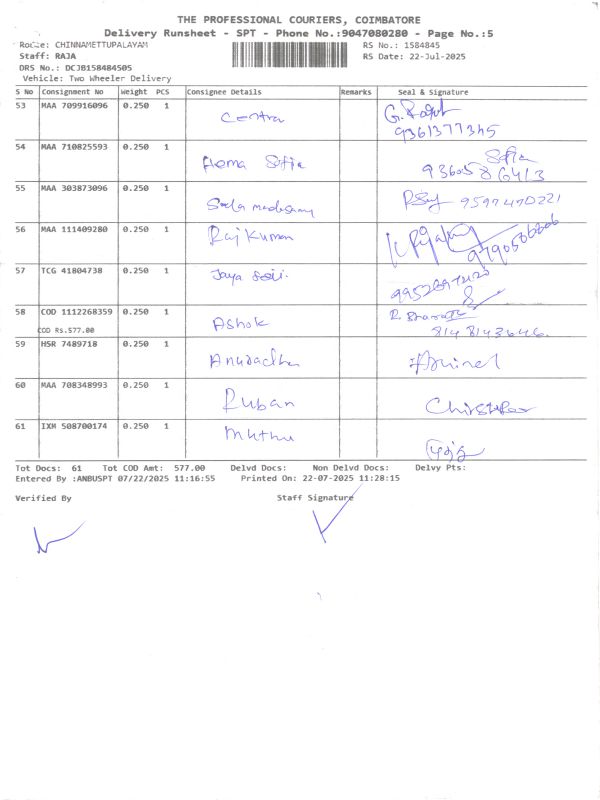 THE PROFESSIONAL COURIERS, COIMBATORE
Delivery Runsheet - SPT - Phone No.:9047080280 - Page No.:5
Route: CHINNAMETTUPALAYAM RS No.: 1584845
Staff: RAJA RS Date: 22-Jul-2025
DRS No.: DCJB158484505
Vehicle: Two Wheeler Delivery
S No Consignment No Weight PCS Consignee Details Remarks Seal & Signature
53 MAA 709916096 0.250 1 Centra
9361377345
54 MAA 710825593 0.250 1 Hema Sofia Sofia
9360586413
55 MAA 303873096 0.250 1 9597470221
56 MAA 111409280 0.250 1 Raj Kumar
57 TCG 41804738 0.250 1 Jaya
58 COD 1112268359 0.250 1 Ashok R. Bharath
COD Rs.577.00 8148143646.
59 HSR 7489718 0.250 1 Anuradha
60 MAA 708348993 0.250 1 Ruban Christopher
61 IXM 508700174 0.250 1 Muthu
Tot Docs: 61 Tot COD Amt: 577.00 Delvd Docs: Non Delvd Docs: Delvy Pts:
Entered By :ANBUSPT 07/22/2025 11:16:55 Printed On: 22-07-2025 11:28:15
Verified By Staff Signature